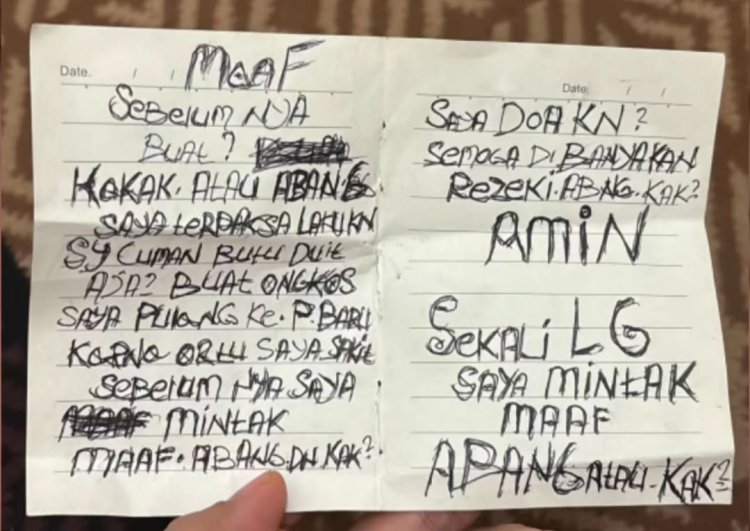 Date. / /
MAAF
SEBELUM NYA
BUAT?
KAKAK. ATAU ABANG
SAYA tERPAKSA LAKUKN
SY CUMAN BUTU DUIT
AJA? BUAT ONGKOS
SAYA PULANG KE. P. BARU
KARNA ORTU SAYA SAKIT
SEBELUM NYA SAYA
MINTAK
MAAF. ABANG DN KAK?
Date. / /
SAYA DOA KN?
SEMOGA DI BANYAKAN
REZEKI. ABNG. KAK?
AMIN
SEKALI LG
SAYA MINTAK
MAAF
ABANG ATAU. KAK?